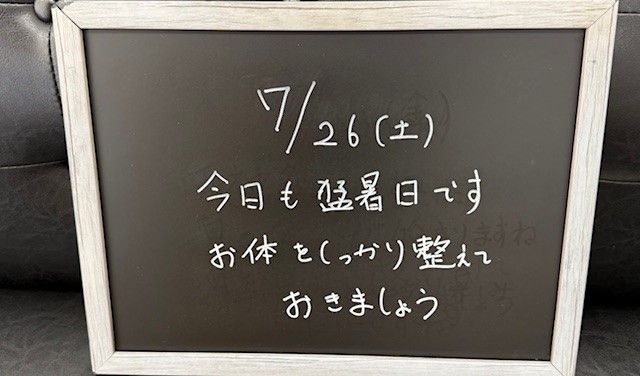 7/26(土)
今日も猛暑日です
お体をしっかり整えて
おきましょう